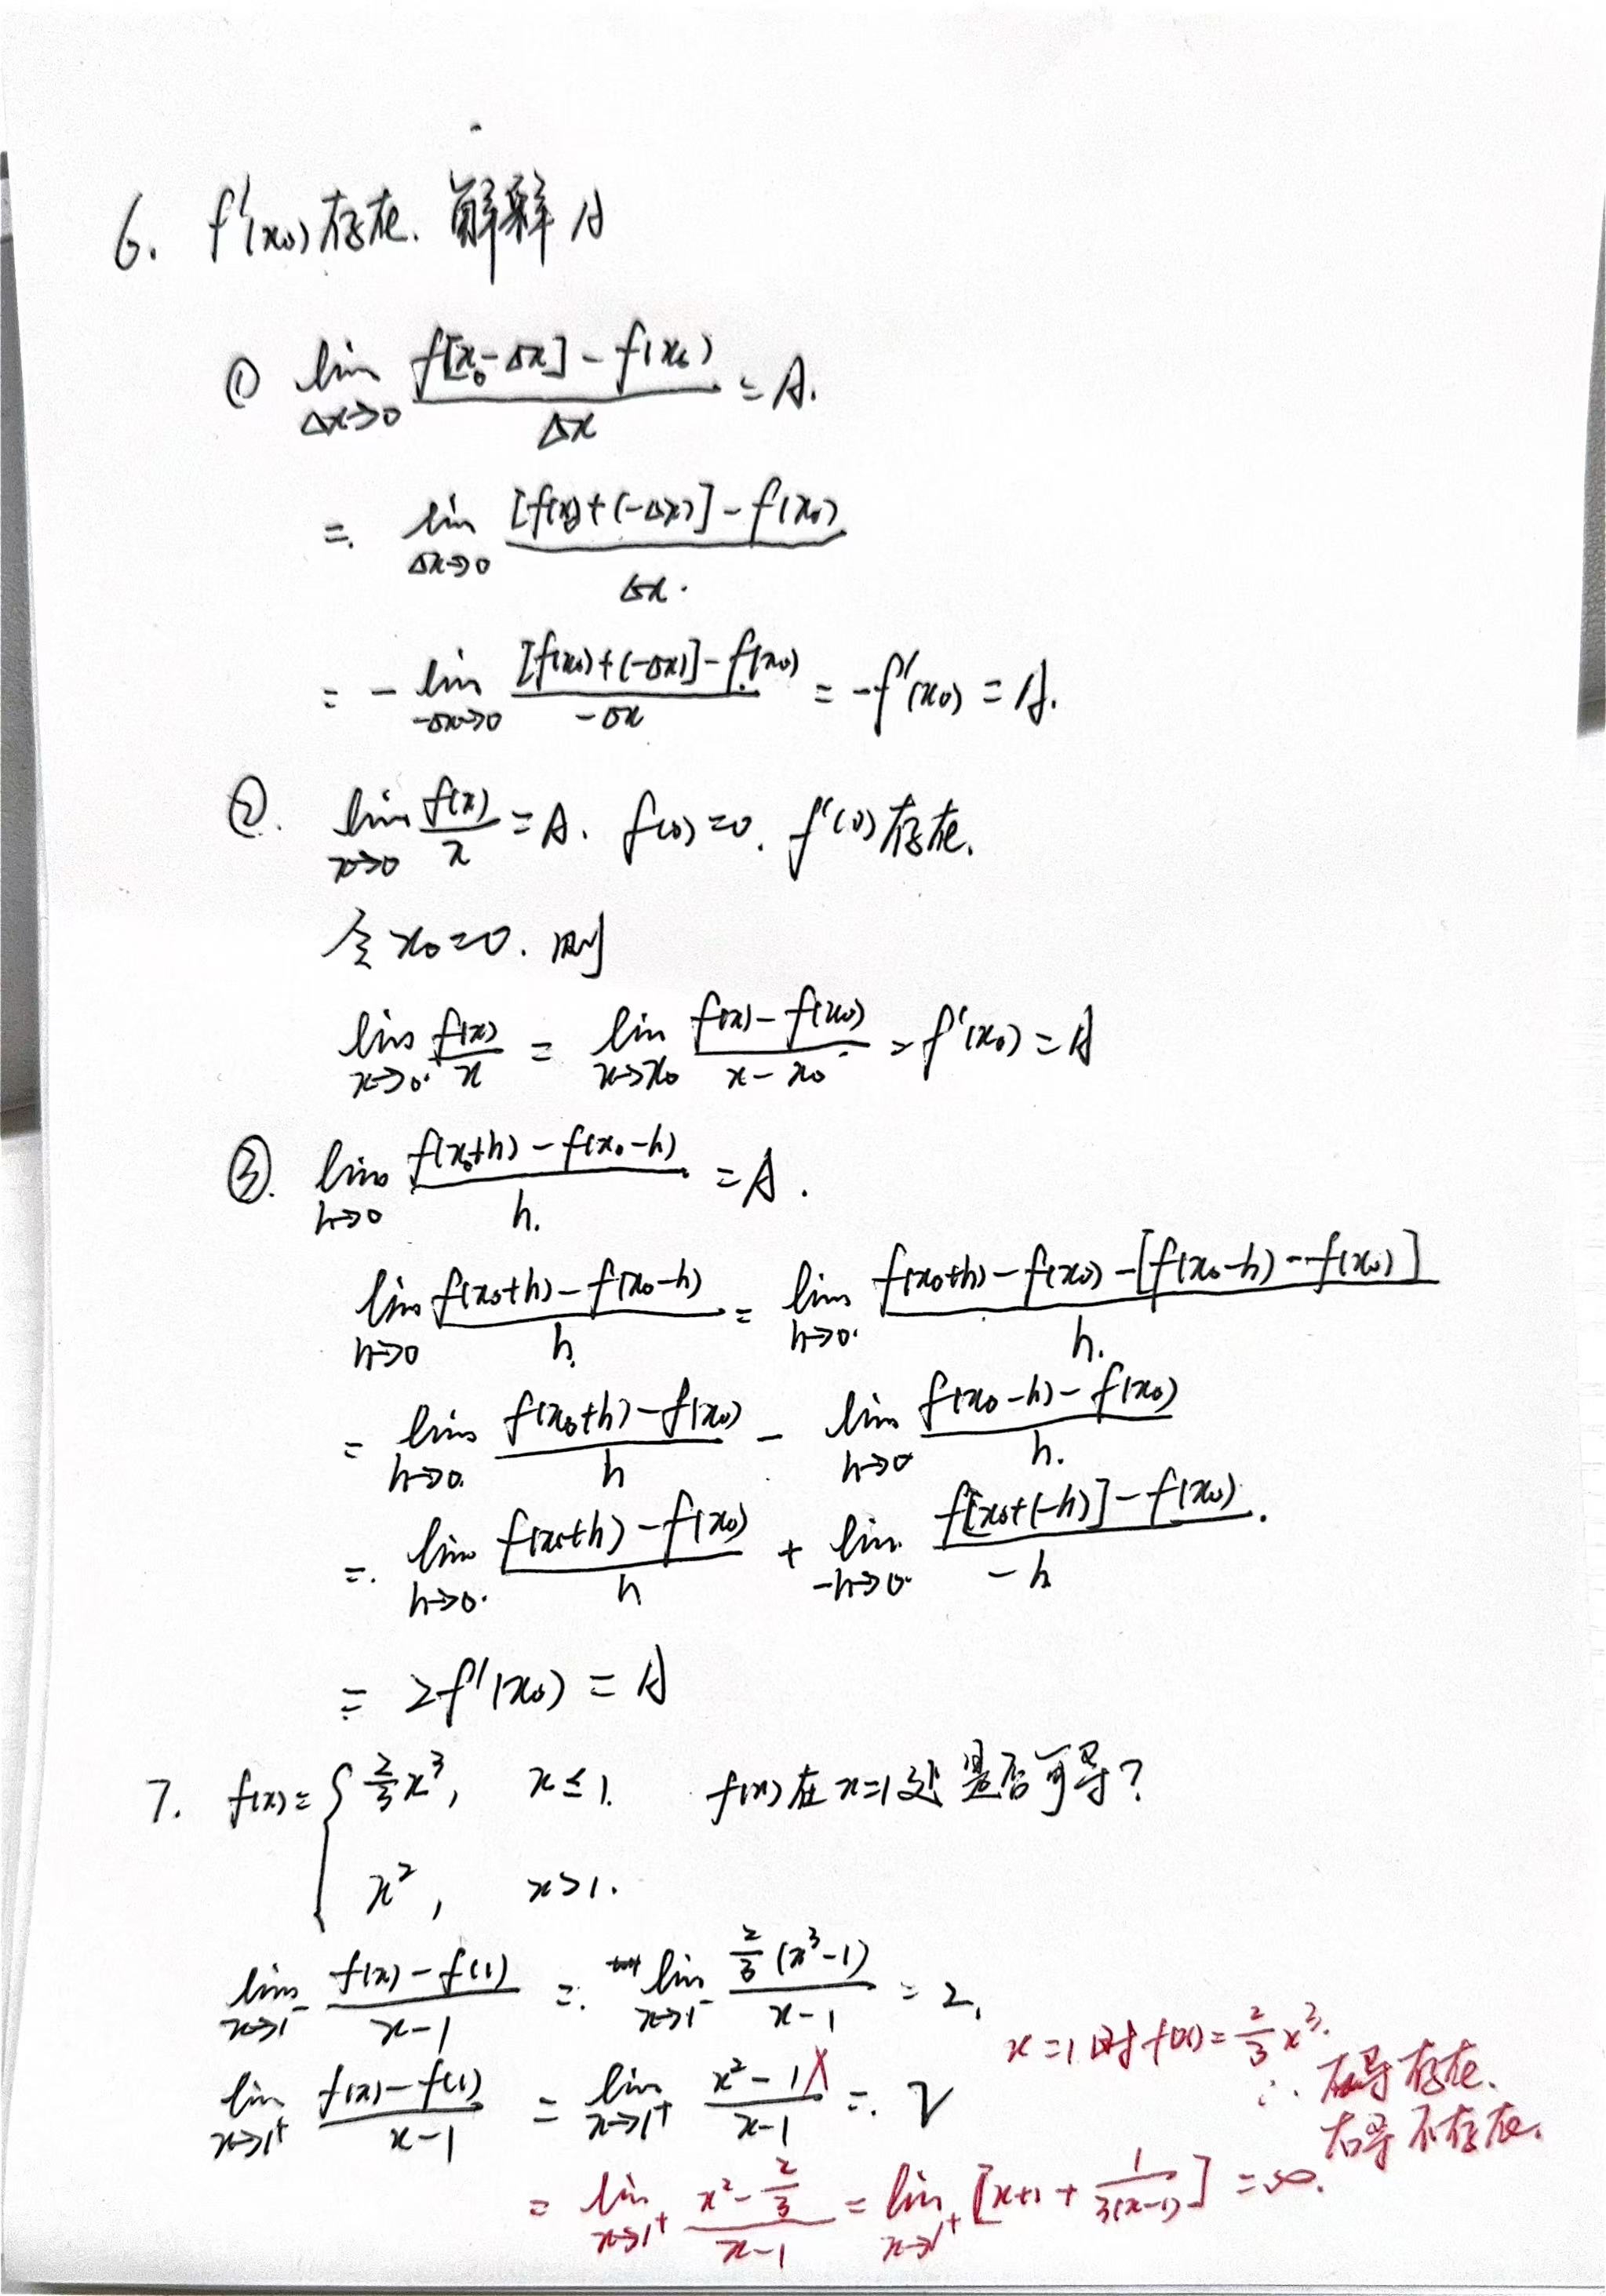 6. f'(x₀)存在. 解释A
① lim_{Δx→0} (f[x₀-Δx]-f(x₀))/Δx = A.
=. lim_{Δx→0} ([f(x₀)+(-Δx)]-f(x₀))/Δx.
= -lim_{-Δx→0} ([f(x₀)+(-Δx)]-f(x₀))/(-Δx) = -f'(x₀) = A.
②. lim_{x→0} f(x)/x = A. f(0)=0. f'(0)存在.
令x₀=0. 则
lim_{x→0} f(x)/x = lim_{x→x₀} (f(x)-f(x₀))/(x-x₀) = f'(x₀) = A
③. lim_{h→0} (f(x₀+h)-f(x₀-h))/h. = A.
lim_{h→0} (f(x₀+h)-f(x₀-h))/h. = lim_{h→0} (f(x₀+h)-f(x₀)-[f(x₀-h)-f(x₀)])/h.
= lim_{h→0} (f(x₀+h)-f(x₀))/h - lim_{h→0} (f(x₀-h)-f(x₀))/h.
=. lim_{h→0} (f(x₀+h)-f(x₀))/h + lim_{-h→0} (f[x₀+(-h)]-f(x₀))/(-h).
= 2f'(x₀) = A
7. f(x)={ 2/3 x³, x≤1. f(x)在x=1处是否可导?
x², x>1.
lim_{x→1⁻} (f(x)-f(1))/(x-1) =. lim_{x→1⁻} (2/3 (x³-1))/(x-1) = 2,
x=1时f(x)=2/3 x³.
lim_{x→1⁺} (f(x)-f(1))/(x-1) = lim_{x→1⁺} (x²-1)/(x-1) =. 2
∴ 左导存在.
右导不存在.
= lim_{x→1⁺} (x²-2/3)/(x-1) = lim_{x→1⁺} [x+1+1/(3(x-1))] = ∞.